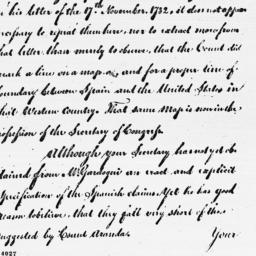 his letter of the 17th November 1782, it does not appear
necessary to repeat them here, nor to extract more from
that letter than merely to observe, that the Count did
mark a line on a map as and for a proper line of
boundary between Spain and the United States in
that Western Country. That same Map is now in the
possession of the Secretary of Congress.
Although your Secretary has not ob
tained from Mr. Gardoqui an exact and explicit
specification of the Spanish claims, Yet he has good
reason to believe, that they fall very short of those
suggested by Count Aranda.
Your
4027